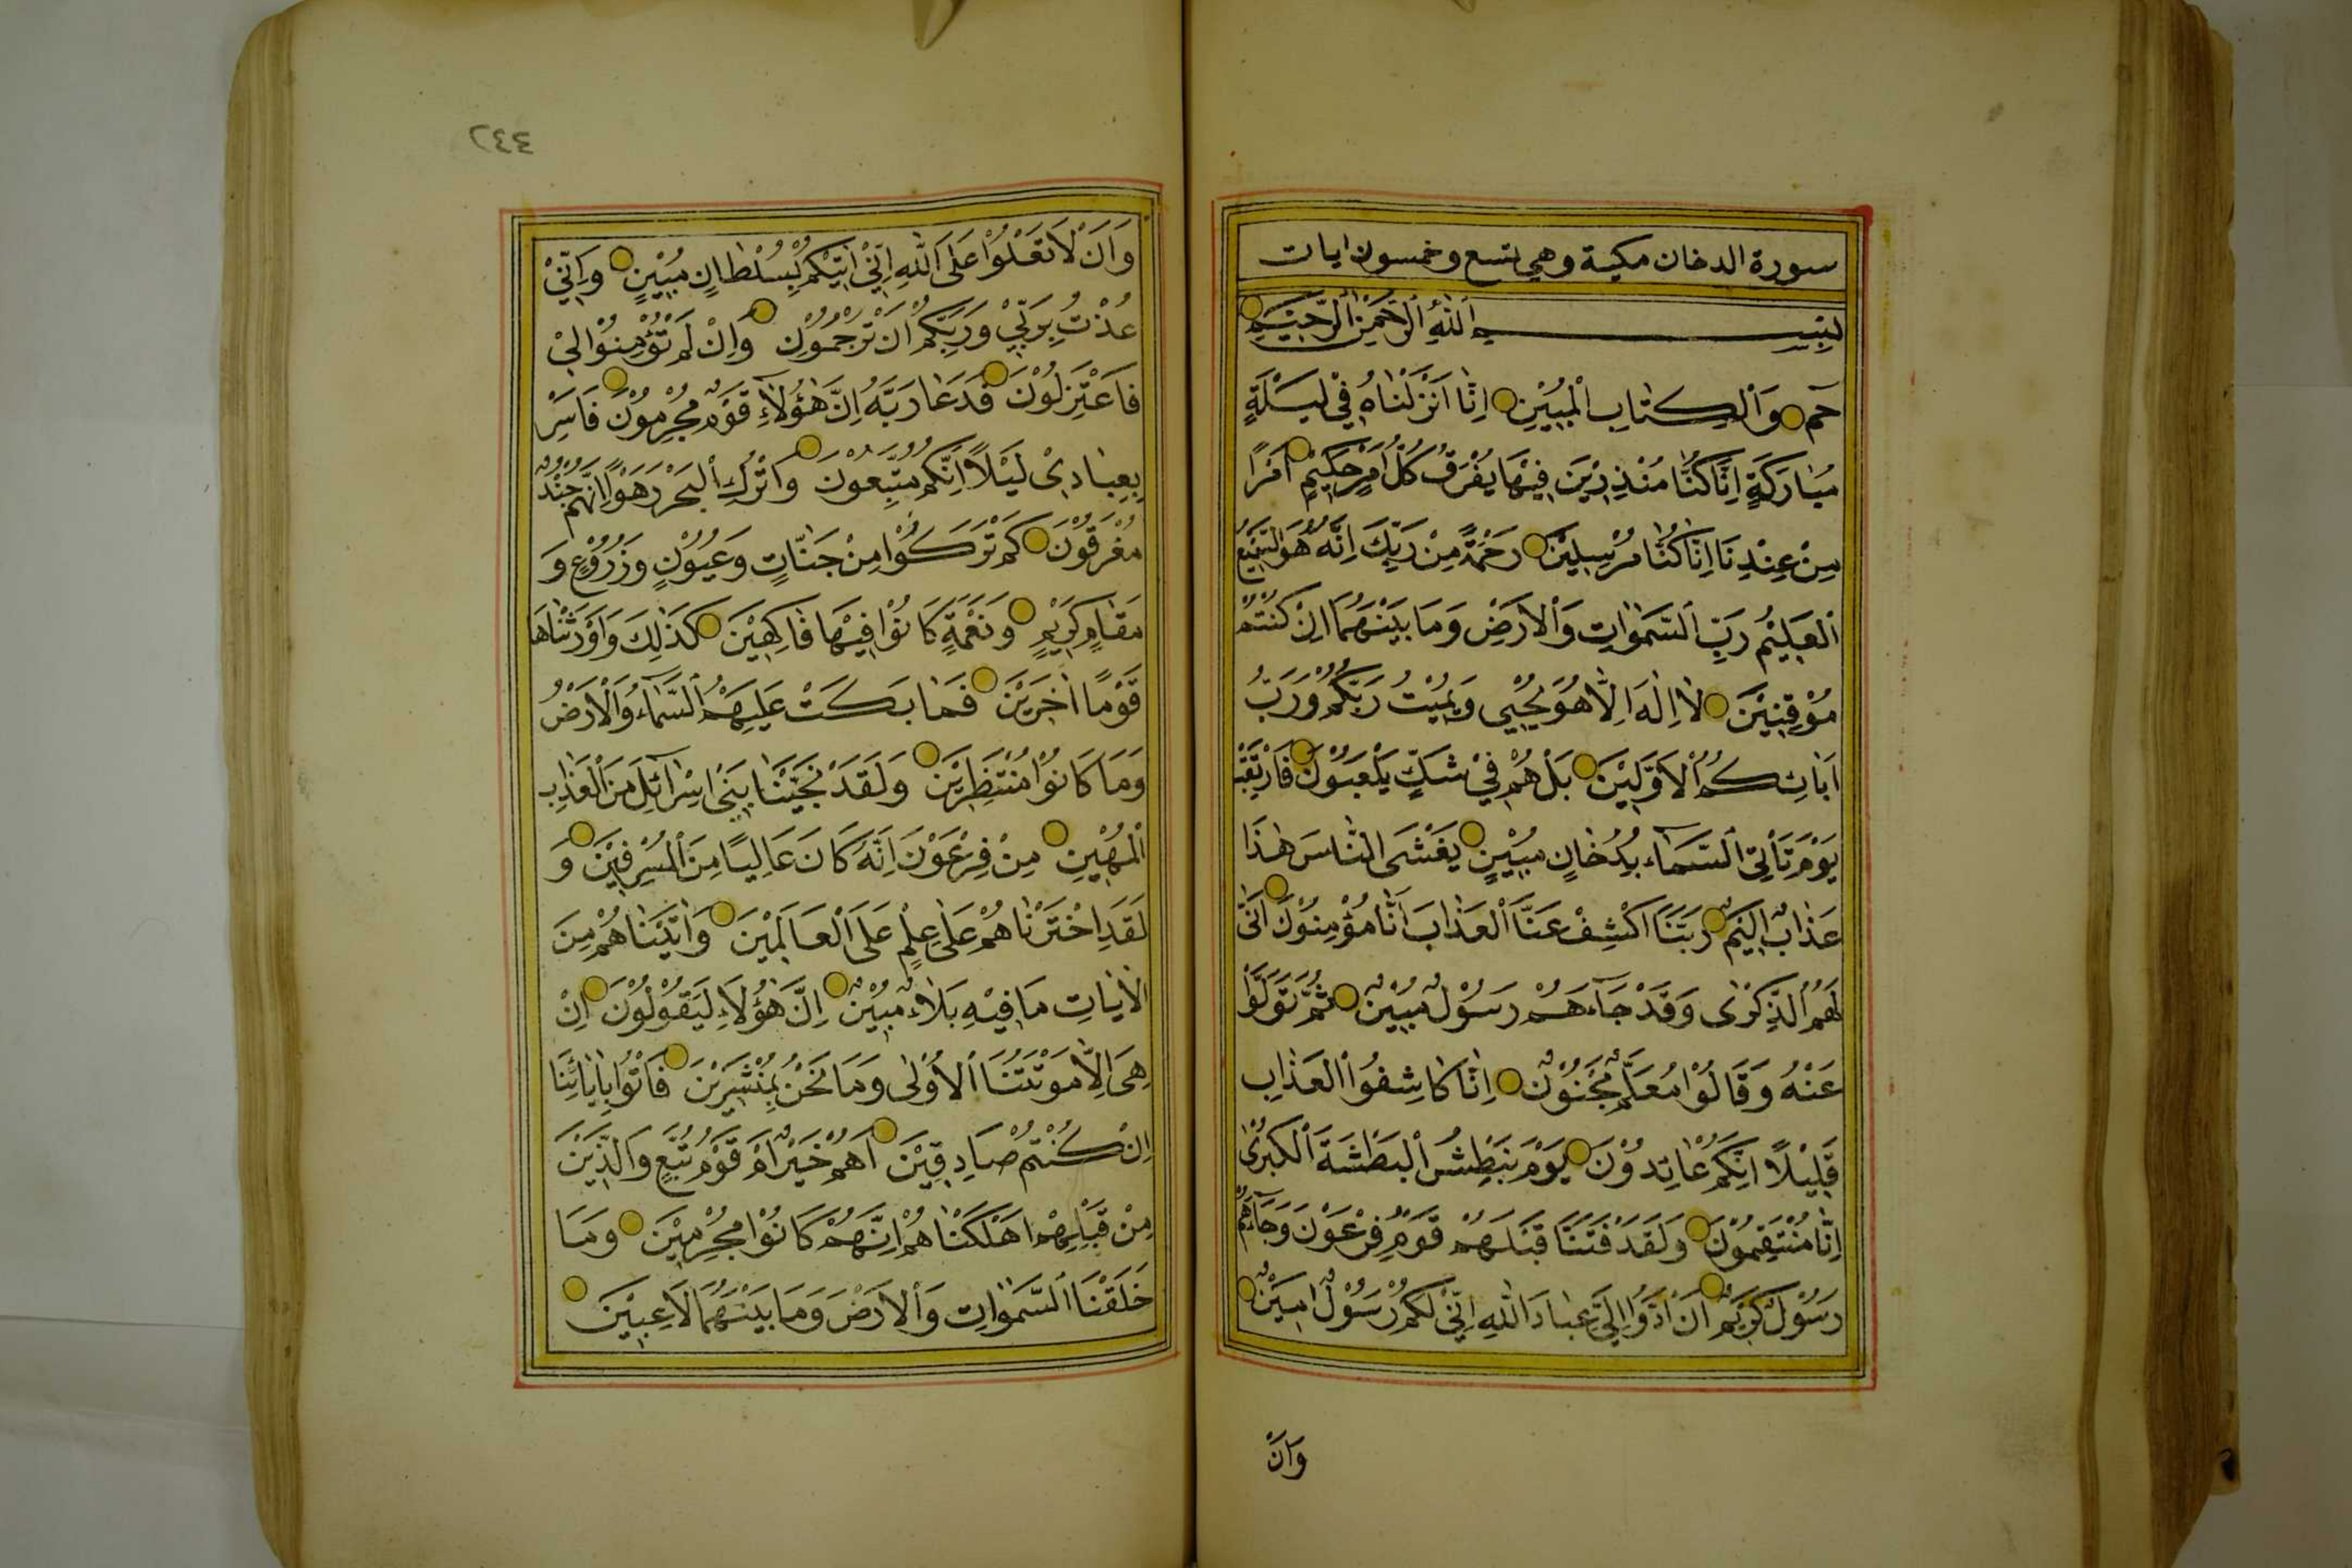 سورة الدخان مكية وهي تسع وخمسون ايات
بِسْمِ اللّٰهِ الرَّحْمٰنِ الرَّحِيمِ
حٰمٓ وَالْكِتَابِ الْمُبِيْنِ اِنَّا اَنْزَلْنَاهُ فِيْ لَيْلَةٍ
مُبَارَكَةٍ اِنَّا كُنَّا مُنْذِرِيْنَ فِيْهَا يُفْرَقُ كُلُّ اَمْرٍ حَكِيْمٍ اَمْرًا
مِنْ عِنْدِنَا اِنَّا كُنَّا مُرْسِلِيْنَ رَحْمَةً مِنْ رَبِّكَ اِنَّهُ هُوَ السَّمِيْعُ
الْعَلِيْمُ رَبِّ السَّمٰوَاتِ وَالْاَرْضِ وَمَا بَيْنَهُمَا اِنْ كُنْتُمْ
مُوْقِنِيْنَ لَا اِلٰهَ اِلَّا هُوَ يُحْيِي وَيُمِيْتُ رَبُّكُمْ وَرَبُّ
اٰبَائِكُمُ الْاَوَّلِيْنَ بَلْ هُمْ فِيْ شَكٍّ يَلْعَبُوْنَ فَارْتَقِبْ
يَوْمَ تَأْتِي السَّمَاءُ بِدُخَانٍ مُبِيْنٍ يَغْشَى النَّاسَ هٰذَا
عَذَابٌ اَلِيْمٌ رَبَّنَا اكْشِفْ عَنَّا الْعَذَابَ اِنَّا مُؤْمِنُوْنَ اَنّٰى
لَهُمُ الذِّكْرٰى وَقَدْ جَآءَهُمْ رَسُوْلٌ مُبِيْنٌ ثُمَّ تَوَلَّوْا
عَنْهُ وَقَالُوْا مُعَلَّمٌ مَجْنُوْنٌ اِنَّا كَاشِفُوا الْعَذَابِ
قَلِيْلًا اِنَّكُمْ عَائِدُوْنَ يَوْمَ نَبْطِشُ الْبَطْشَةَ الْكُبْرٰى
اِنَّا مُنْتَقِمُوْنَ وَلَقَدْ فَتَنَّا قَبْلَهُمْ قَوْمَ فِرْعَوْنَ وَجَآءَهُمْ
رَسُوْلٌ كَرِيْمٌ اَنْ اَدُّوْا اِلَيَّ عِبَادَ اللّٰهِ اِنِّيْ لَكُمْ رَسُوْلٌ اَمِيْنٌ
وَاَنْ
٢٤٤
وَاَنْ لَا تَعْلُوْا عَلَى اللّٰهِ اِنِّيْ اٰتِيْكُمْ بِسُلْطَانٍ مُبِيْنٍ وَاِنِّيْ
عُذْتُ بِرَبِّيْ وَرَبِّكُمْ اَنْ تَرْجُمُوْنِ وَاِنْ لَمْ تُؤْمِنُوْا لِيْ
فَاعْتَزِلُوْنَ فَدَعَا رَبَّهُ اِنَّ هٰؤُلَاءِ قَوْمٌ مُجْرِمُوْنَ فَاَسْرِ
بِعِبَادِيْ لَيْلًا اِنَّكُمْ مُتَّبَعُوْنَ وَاتْرُكِ الْبَحْرَ رَهْوًا اِنَّهُمْ جُنْدٌ
مُغْرَقُوْنَ كَمْ تَرَكُوْا مِنْ جَنَّاتٍ وَعُيُوْنٍ وَزُرُوْعٍ وَ
مَقَامٍ كَرِيْمٍ وَنَعْمَةٍ كَانُوْا فِيْهَا فَاكِهِيْنَ كَذٰلِكَ وَاَوْرَثْنَاهَا
قَوْمًا اٰخَرِيْنَ فَمَا بَكَتْ عَلَيْهِمُ السَّمَاءُ وَالْاَرْضُ
وَمَا كَانُوْا مُنْتَظِرِيْنَ وَلَقَدْ نَجَّيْنَا بَنِيْ اِسْرَائِلَ مِنَ الْعَذَابِ
الْمُهِيْنِ مِنْ فِرْعَوْنَ اِنَّهُ كَانَ عَالِيًا مِنَ الْمُسْرِفِيْنَ وَ
لَقَدِ اخْتَرْنَاهُمْ عَلٰى عِلْمٍ عَلَى الْعَالَمِيْنَ وَاٰتَيْنَاهُمْ مِنَ
الْاٰيَاتِ مَا فِيْهِ بَلَاءٌ مُبِيْنٌ اِنَّ هٰؤُلَاءِ لَيَقُوْلُوْنَ اِنْ
هِيَ اِلَّا مَوْتَتُنَا الْاُوْلٰى وَمَا نَحْنُ بِمُنْشَرِيْنَ فَأْتُوْا بِاٰبَائِنَا
اِنْ كُنْتُمْ صَادِقِيْنَ اَهُمْ خَيْرٌ اَمْ قَوْمُ تُبَّعٍ وَالَّذِيْنَ
مِنْ قَبْلِهِمْ اَهْلَكْنَاهُمْ اِنَّهُمْ كَانُوْا مُجْرِمِيْنَ وَمَا
خَلَقْنَا السَّمٰوَاتِ وَالْاَرْضَ وَمَا بَيْنَهُمَا لَاعِبِيْنَ